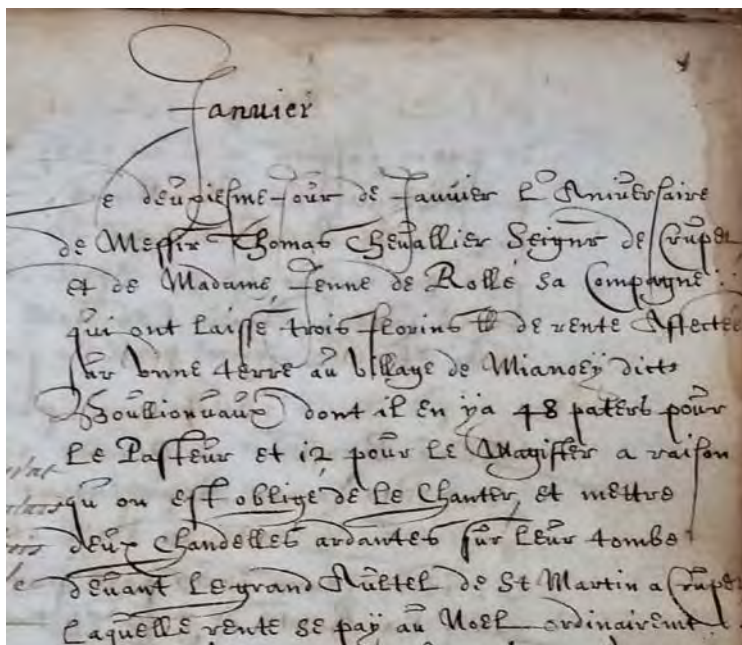 Januier
e deuxiesme Jour de Januier L'Aniuersaire
de Messir Thomas Cheuallier Seignr de Crupet
et de Madame Jenne de Rollé sa Compagne
qui ont laissé trois florins de rente Affectée
sur vnne terre au village de Mianoÿ dicts
dont il en ÿa 48 paters pour
Le Pasteur et 12 pour Le Magister a raison
qu on est obligé de Le Chanter, et mettre
deux chandelles ardantes sur leur tombe
deuant Le grand Autel de St Martin a Crupet
Laquelle rente se paÿ au Noel ordinairemt